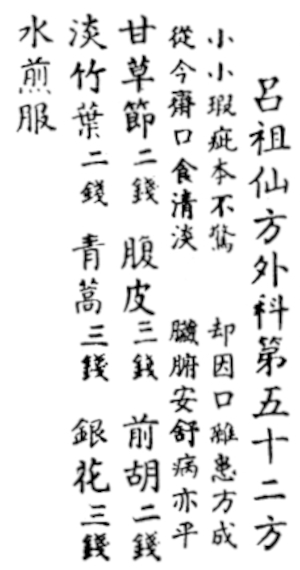 呂祖仙方外科第五十二方
小小瑕疵本不驚　却因口雜患方成
從今齋口食清淡　臟腑安舒病亦平
甘草節二錢　腹皮三錢　前胡二錢
淡竹葉二錢　青蒿三錢　銀花三錢
水煎服